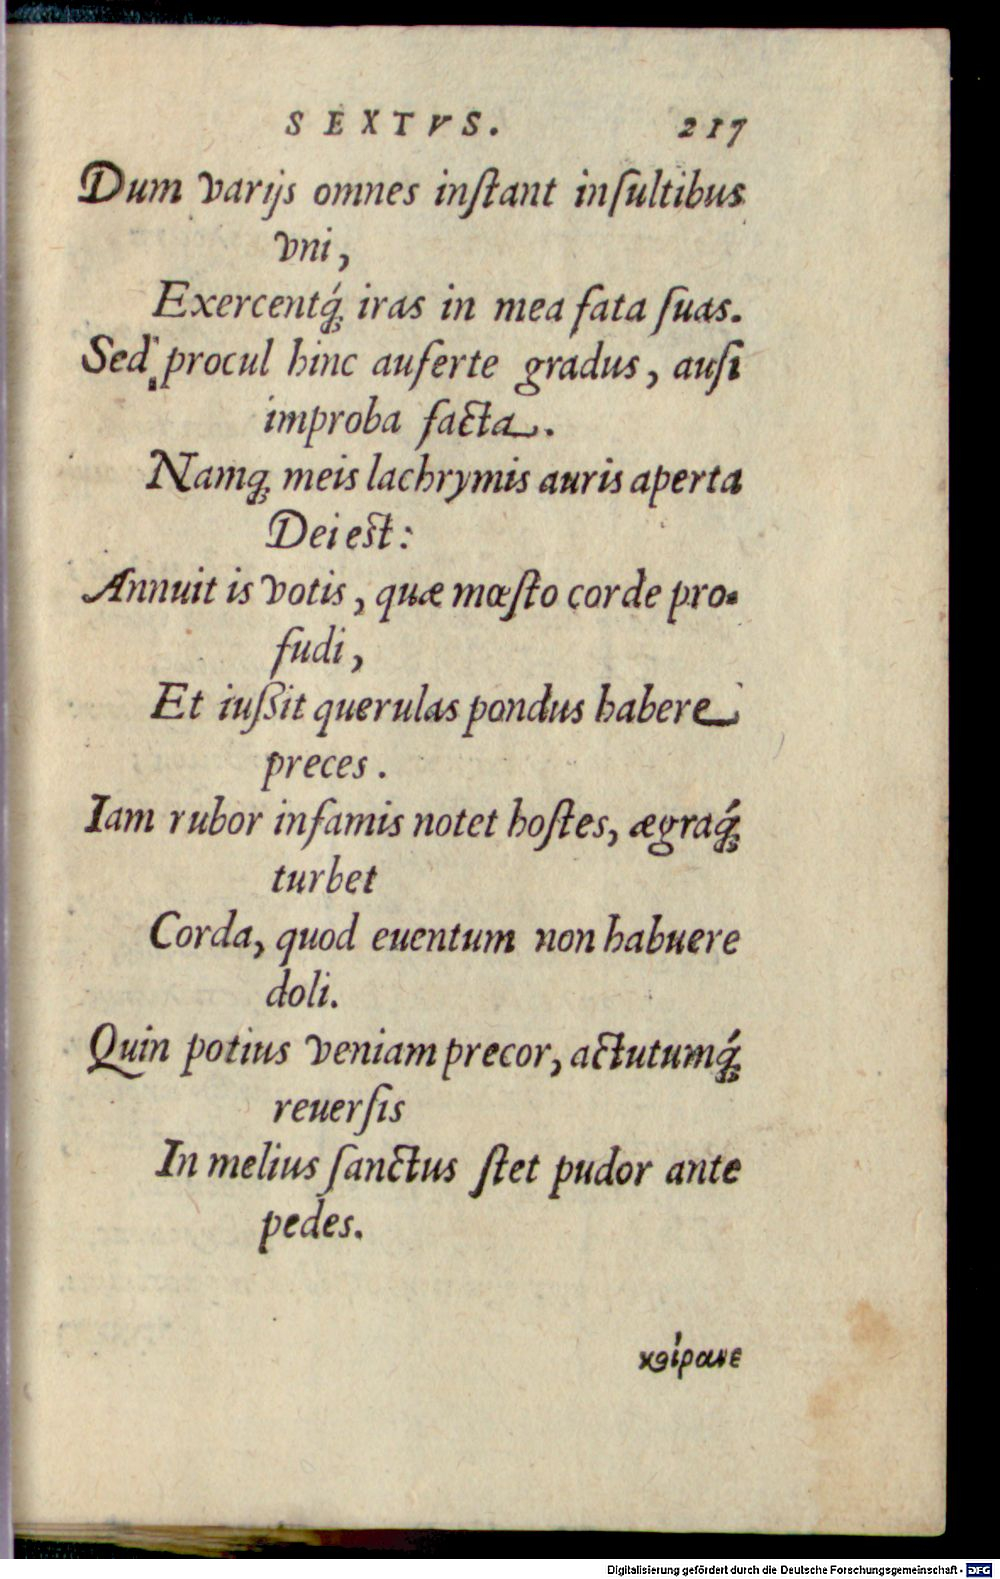 SEXTVS. 217
Dum varijs omnes inſtant inſultibus
vni,
Exercentq́; iras in mea fata ſuas.
Sed procul hinc auferte gradus, auſi
improba facta.
Namq; meis lachrymis auris aperta
Dei est:
Annuit is votis, quæ mœſto corde pro-
fudi,
Et iuſſit querulas pondus habere
preces.
Iam rubor infamis notet hoſtes, ægraq́;
turbet
Corda, quod euentum non habuere
doli.
Quin potius veniam precor, actutumq́;
reuerſis
In melius ſanctus ſtet pudor ante
pedes.
Digitalisierung gefördert durch die Deutsche Forschungsgemeinschaft - DFG